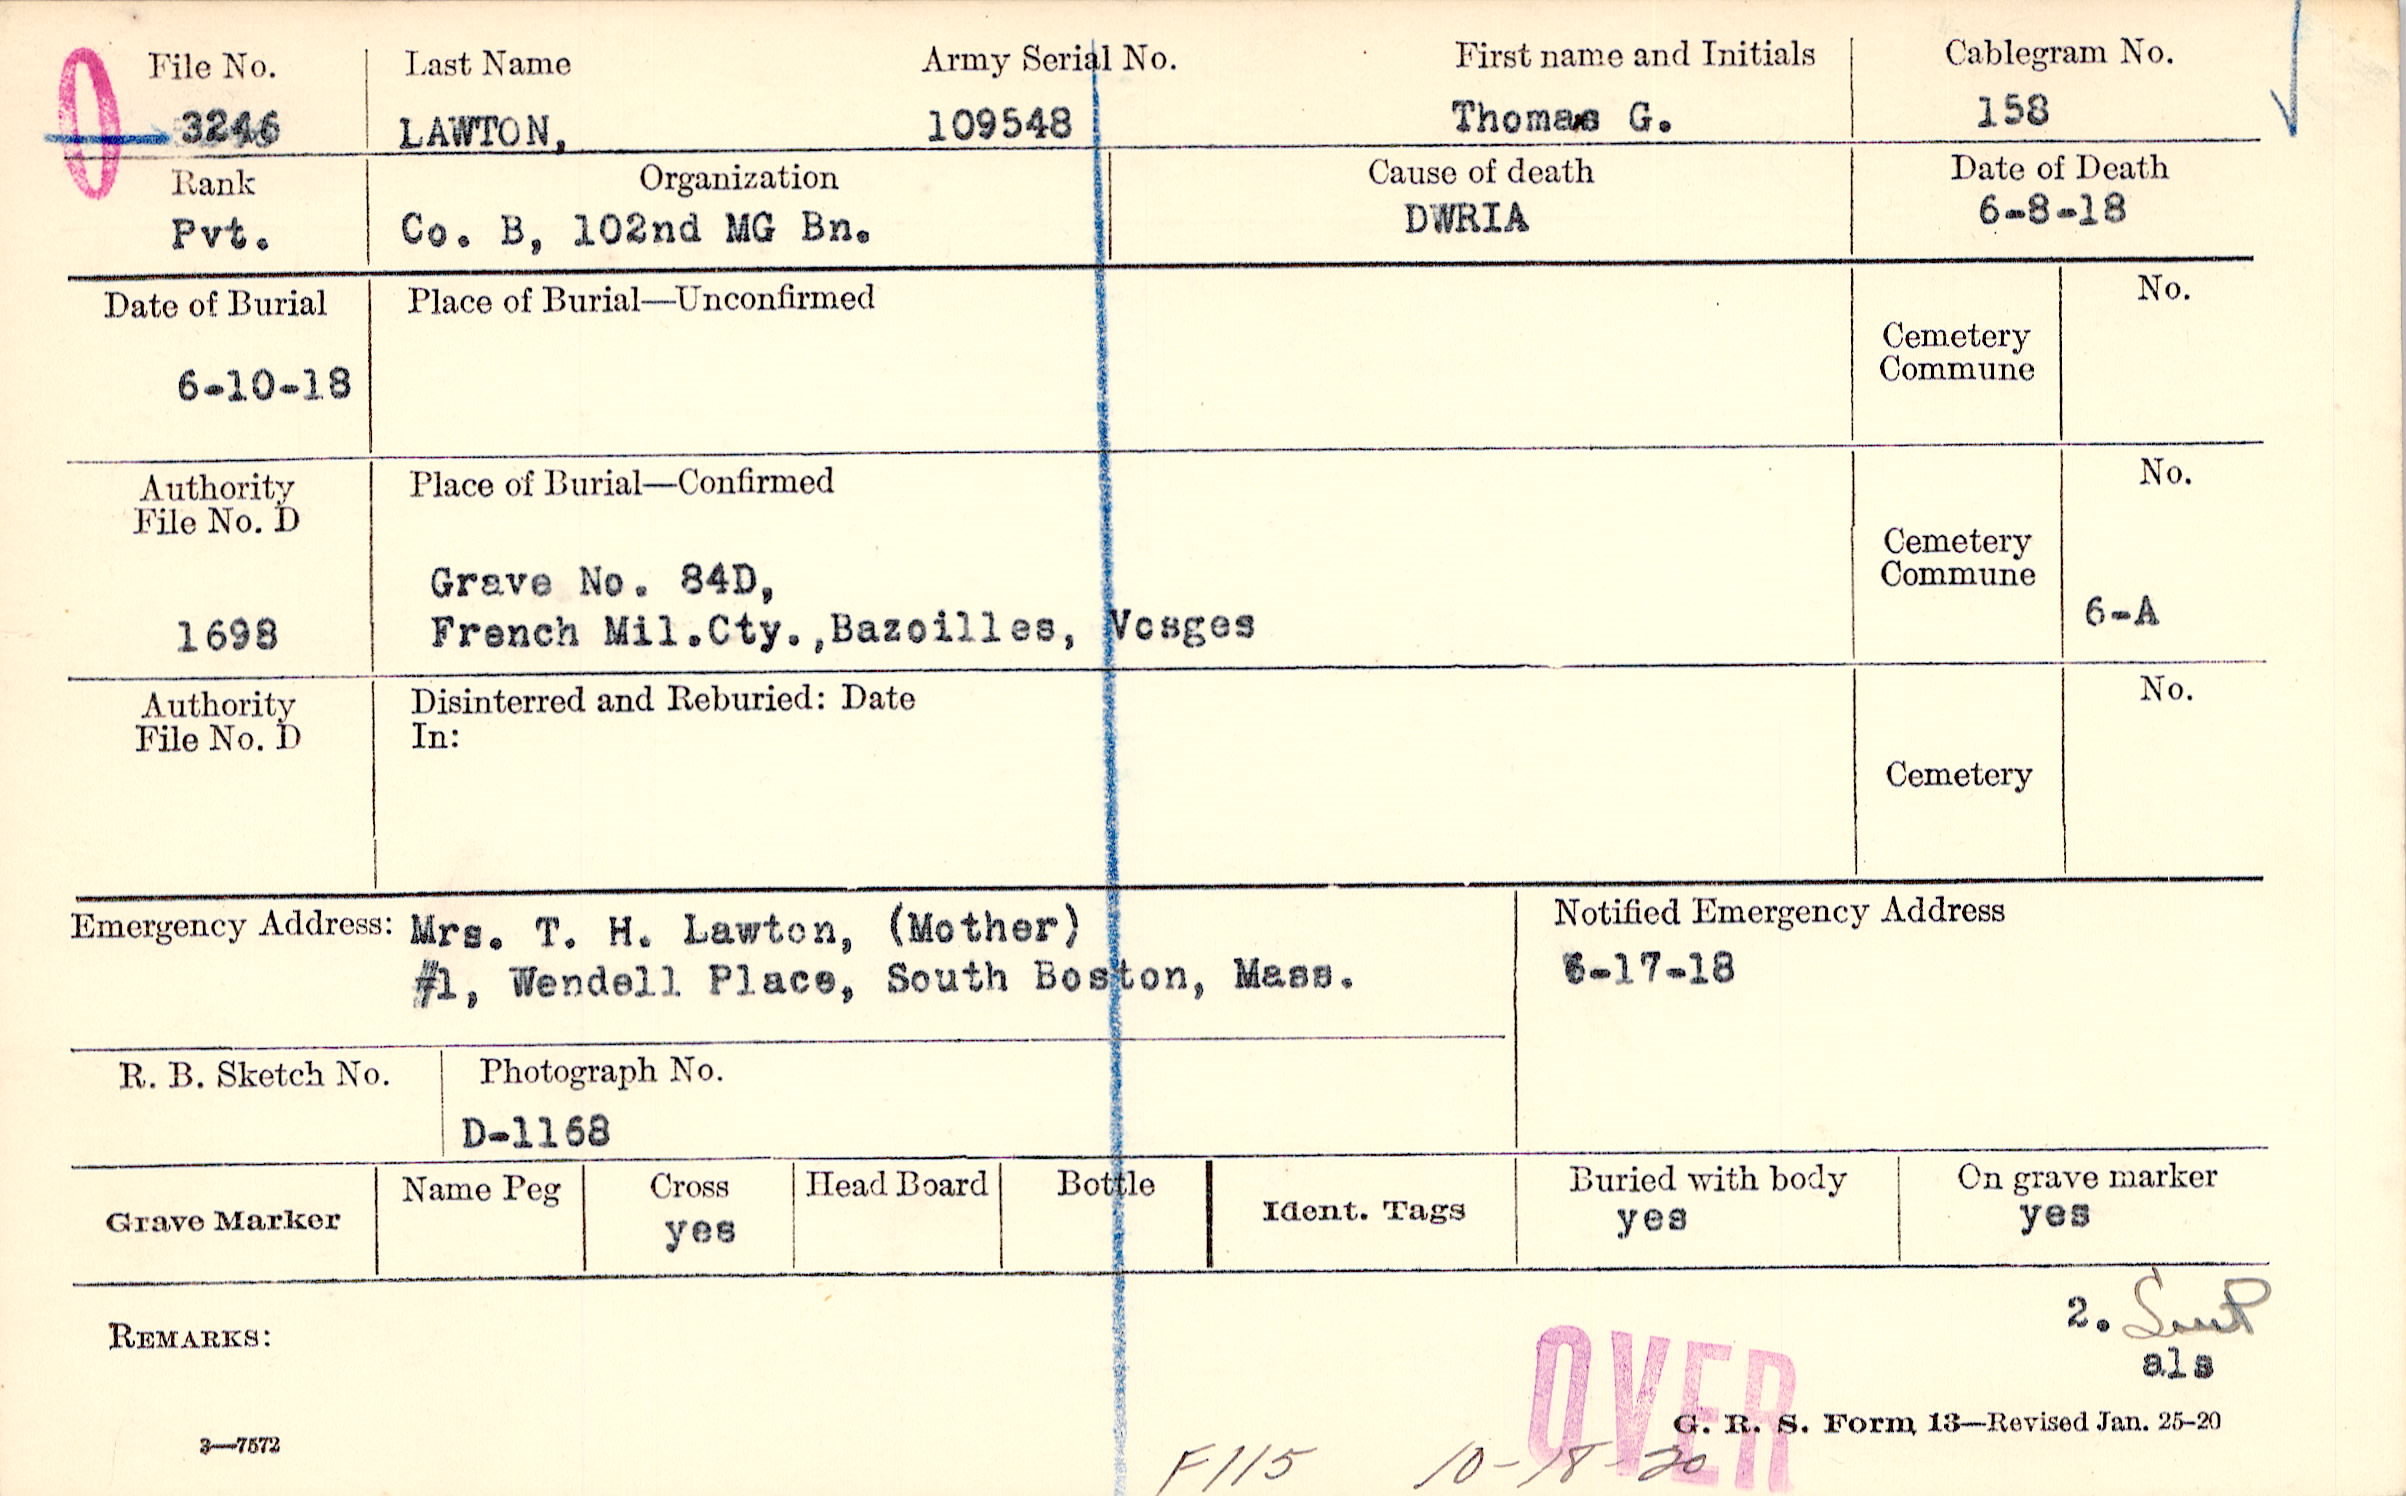 File No. Last Name Army Serial No. First name and Initials Cablegram No.
3246 LAWTON, 109548 Thomas G. 158
Rank Organization Cause of death Date of Death
Pvt. Co. B, 102nd MG Bn. DWRIA 6-8-18
Date of Burial Place of Burial—Unconfirmed No.
Cemetery
Commune
6-10-18
Authority Place of Burial—Confirmed No.
File No. D
Cemetery
Commune
Grave No. 84D,
1698 French Mil.Cty.,Bazoilles, Vosges 6-A
Authority Disinterred and Reburied: Date No.
File No. D In:
Cemetery
Emergency Address: Mrs. T. H. Lawton, (Mother) Notified Emergency Address
#1, Wendell Place, South Boston, Mass. 6-17-18
R. B. Sketch No. Photograph No.
D-1168
Grave Marker Name Peg Cross Head Board Bottle Ident. Tags Buried with body On grave marker
yes yes yes
2.
REMARKS:
als
OVER
G. R. S. Form 13—Revised Jan. 25-20
3—7572
F115 10-18-20